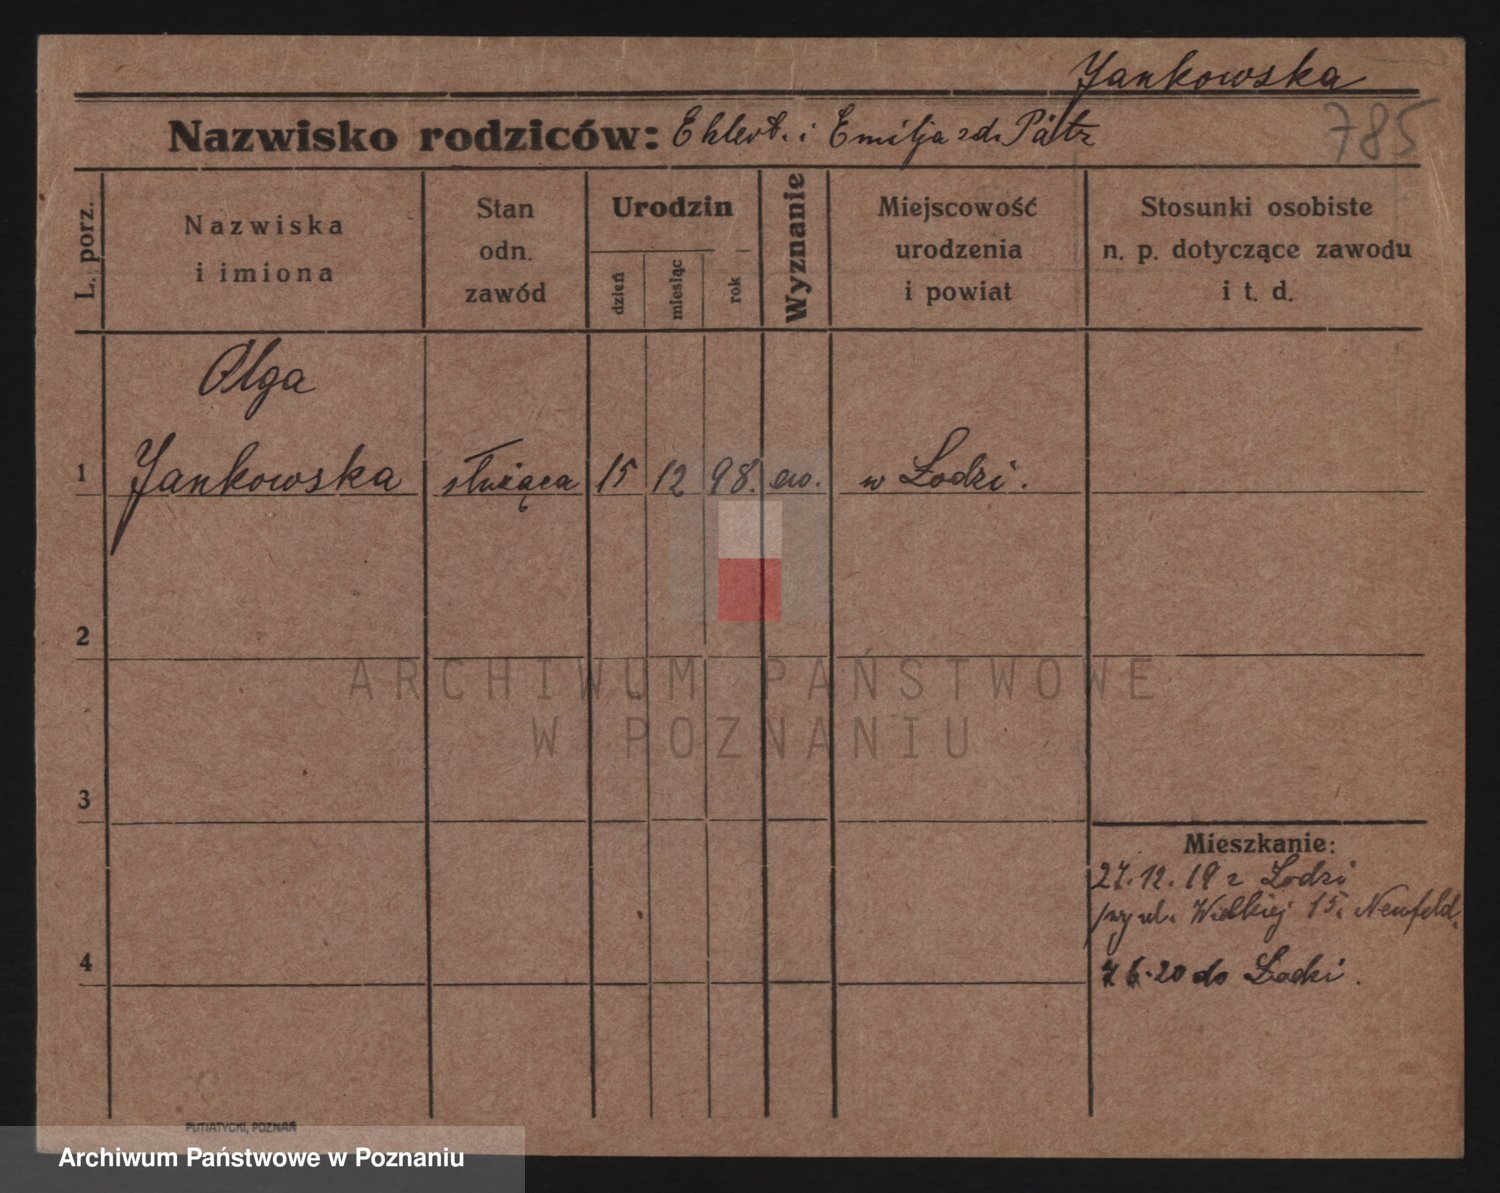 Jankowska
785
Nazwisko rodziców: Ehlert. i Emilja zd. Pätz
L. porz.
Nazwiska
i imiona
Stan
odn.
zawód
Urodzin
dzień
miesiąc
rok
Wyznanie
Miejscowość
urodzenia
i powiat
Stosunki osobiste
n. p. dotyczące zawodu
i t. d.
Olga
1 Jankowska służąca 15 12 98. ew. w Łodzi.
2
ARCHIWUM PAŃSTWOWE
W POZNANIU
3
Mieszkanie:
27.12.19 z Łodzi
ul. Wielkiej 15. Neufeld.
4
20 do Łodzi.
PUTIATYCKI, POZNAŃ
Archiwum Państwowe w Poznaniu